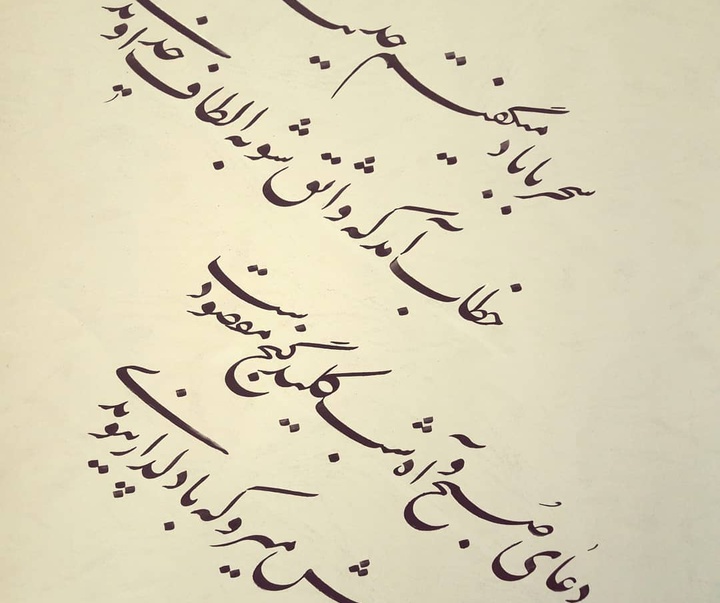 سحر با باد میگفتم
خطاب آمد که واثق شو به الطاف خداوندی
دعای صبح و آه شب کلید گنج مقصودست
میرو که با دلدار پیوندی